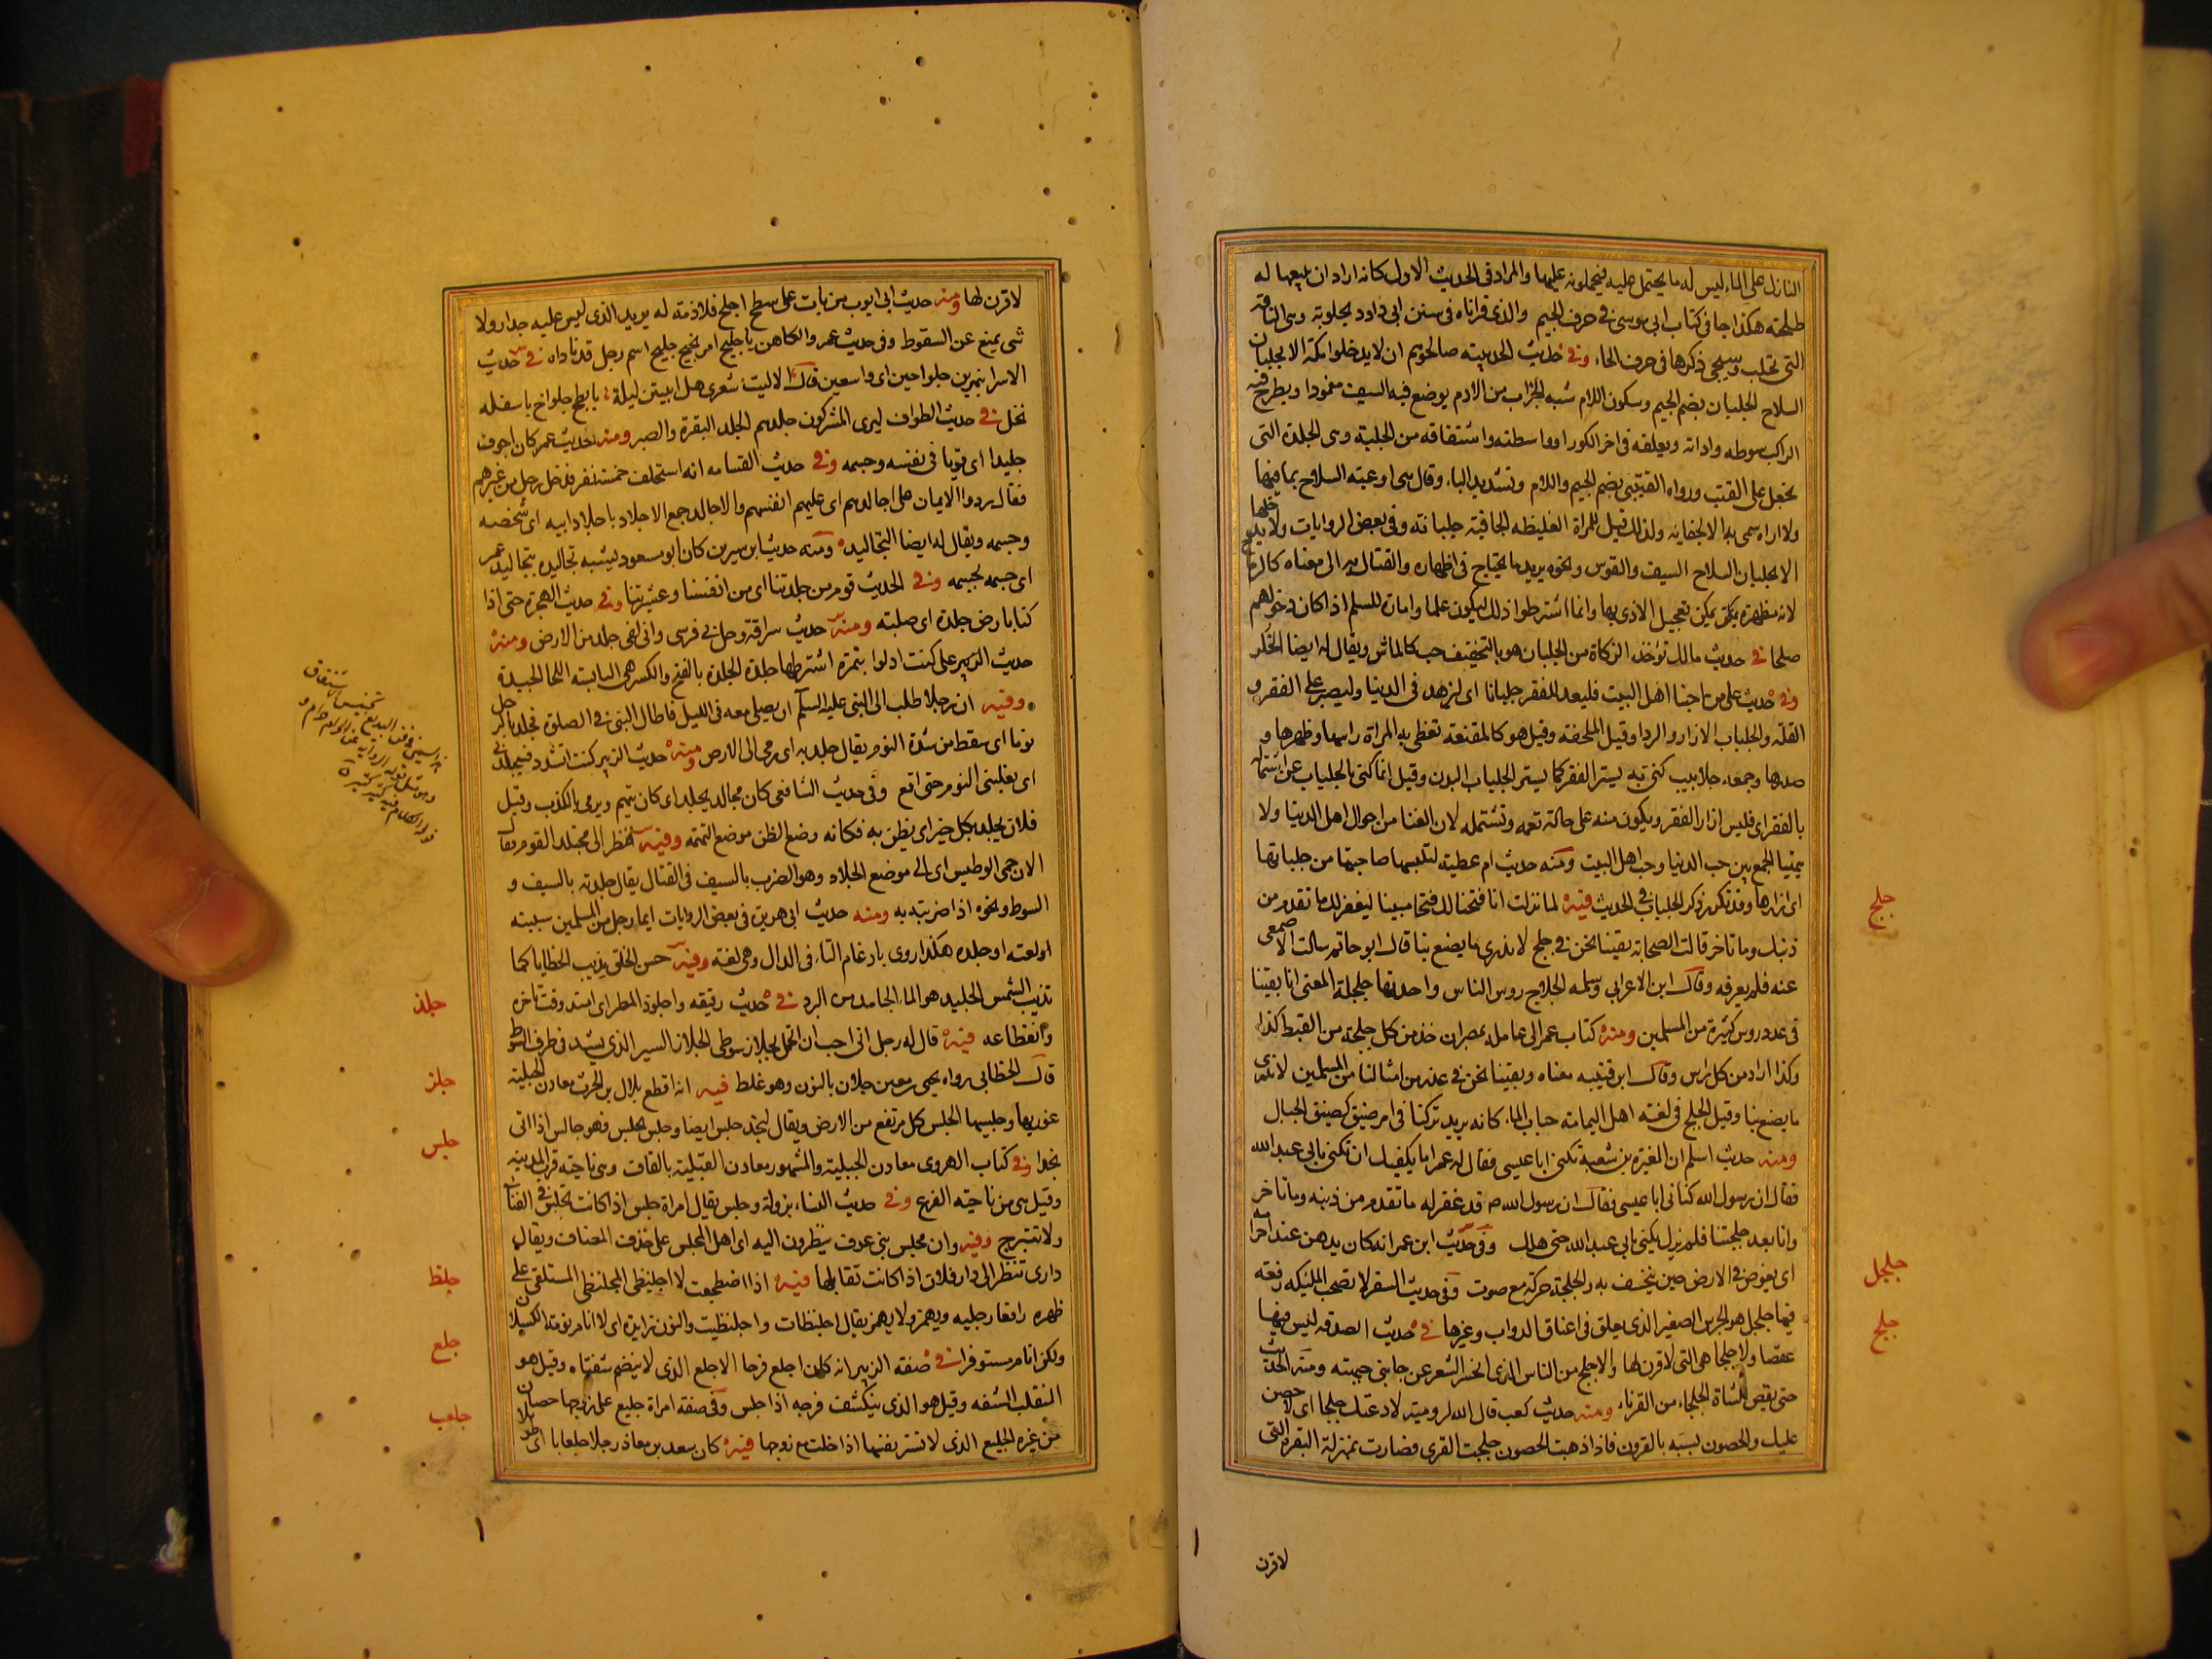 النازل على الماء ليس له ما يحتمل عليه فيحملونه عليها والمراد في الحديث الاول كانه اراد ان يبيعها له
طلحة هكذا جا في كتاب ابي موسى في حرف الجيم والذي قراناه في سنن ابي داود بحلوبة وهي الناقة
التي تحلب وسيجي ذكرها في حرف الحاء وفي حديث الحديبيه صالحوهم ان لا يدخلوا مكة الا بجلبان
السلاح الجلبان بضم الجيم وسكون اللام شبه الجراب من الادم يوضع فيه السيف مغمودا ويطرح فيه
الراكب سوطه واداته ويعلقه في اخر الكور او واسطته واشتقاقه من الجلبة وهي الجلدة التي
تجعل على القتب ورواه القتيبى بضم الجيم واللام وتشديد الباء وقال هى اوعية السلاح بما فيها
ولا اراه سمى به الا لجفائه ولذلك قيل للمراة الغليظه الجافية جلبانة وفي بعض الروايات ولا يدخلها
الا بجلبان السلاح السيف والقوس ونحوه يريد ما يحتاج في اظهاره والقتال به الى معناه كالرماح
لانه مظهرة يمكن تعجيل الاذى بها وانما اشترطوا ذلك ليكون علما وامارة للسلم اذا كان دخولهم
صلحا في حديث مالك تؤخذ الزكاة من الجلبان هو بالتخفيف حب كالماش ويقال له ايضا الخلر
وفي حديث على من احبنا اهل البيت فليعد للفقر جلبابا اى ليزهد في الدنيا وليصبر على الفقر و
القلة والجلباب الازار والردا وقيل الملحفة وقيل هو كالمقنعة تغطي به المراة راسها وظهرها و
صدرها وجمعه جلابيب كنى به يستر الفقر كما يستر الجلباب البدن وقيل انما كنى بالجلباب عن اشتماله
بالفقر اى فليس ازار الفقر ويكون منه على حالة تعمه وتشتمله لان الغنا من احوال اهل الدنيا ولا
يتهيا الجمع بين حب الدنيا وحب اهل البيت ومنه حديث ام عطية لتلبسها صاحبتها من جلبابها
اى ازارها وقد تكرر ذكر الجلباب في الحديث فيه لما نزلت انا فتحنا لك فتحا مبينا ليغفر لك ما تقدم من
ذنبك وما تاخر قالت الصحابة بقينا نحن في جلج لا ندرى ما يصنع بنا قال ابو حاتم سالت الاصمعى
عنه فلم يعرفه وقال ابن الاعرابي وسلمه الجلاج روس الناس واحدتها جلجلة المعنى انا بقينا
في عدد روس كثيرة من المسلمين ومنه كتاب عمر الى عامله بمصر ان خذ من كل جلجة من القبط كذا
وكذا اراد من كل راس وقال ابن قتيبه معناه وبقينا نحن في عدد من امثالنا من المسلمين لا ندرى
ما يصنع بنا وقيل الجلج في لغة اهل اليمامة حباب الماء كانه يريد تركنا في امر ضيق كضيق الحباب
ومنه حديث اسلم ان المغيرة بن شعبة تكنى ابا عيسى فقال له عمر اما يكفيك ان تكنى بابى عبد الله
فقال ان رسول الله كنانى ابا عيسى فقال ان رسول الله ص قد غفر له ما تقدم من ذنبه وما تاخر
وانا بعد جلجتنا فلم يزل يكنى بابى عبد الله حتى هلك وفي حديث ابن عمر انه كان يدهن عند احرامه
اى يغوض في الارض حين يخسف به والجلجلة حركة مع صوت وفي حديث السفر لا تصحب الملئكه رفقة
فيها جلجل هو الجرس الصغير الذى يعلق في اعناق الدواب وغيرها في حديث الصدقه ليس فيها
عقصا ولا جلحا هى التى لا قرن لها والاجلح من الناس الذى انحسر الشعر عن جانبى جبهته ومنه الحديث
حتى يقص للشاة الجلحاء من القرناء ومنه حديث كعب قال الله لرومية لادعنك جلحا اى لا حصن
عليك والحصون تشبه بالقرون فاذا ذهبت الحصون جلحت القرى فصارت بمنزلة البقرة التى
جلج
جلجل
جلح
لا قرن
لا قرن لها ومنه حديث ابى ايوب من بات على سطح اجلح فلا ذمة له يريد الذى ليس عليه جدار ولا
شى يمنع عن السقوط وفي حديث عمر والكاهن يا جليح امر نجيح جليح اسم رجل قد ناداه في حديث
الاسرا بنهرين جلواخين اى واسعين قال الا ليت شعرى هل ابيتن ليلة بابطح جلواخ باسفله
نخل في حديث الطواف ليرى المشركون جلدهم الجلد القوة والصبر ومنه حديث عمر كان اجوف
جليدا اى قويا في نفسه وجسمه وفي حديث القسامه انه استحلف خمسة نفر فدخل رجل من غيرهم
فقال ردوا الايمان على اجالدهم اى عليهم انفسهم والاجالد جمع الاجلاد باجلاد ابيه اى شخصه
وجسمه ويقال له ايضا التجاليد ومنه حديث ابن سيرين كان ابو مسعود يشبه تجاليده بتجاليد عمر
اى جسمه بجسمه وفي الحديث قوم من جلدتنا اى من انفسنا وعشيرتنا وفي حديث الهجرة حتى اذا
كنا بارض جلدة اى صلبة ومنه حديث سراقة وحل بى فرسى وانى لفى جلد من الارض ومنه
حديث على كنت ادلوا بتمرة اشترطها جلدة الجلدة بالفتح والكسر هى اليابسة اللحا الجيدة
وفيه ان رجلا طلب الى النبى عليه السلم ان يصلى معه في الليل فاطال النبى في الصلوة فجلد بالرجل
نوما اى سقط من شدة النوم يقال جلد به اى رمى الى الارض ومنه حديث الزبير كنت اتشدد فيجلد بى
اى يغلبنى النوم حتى اقع وفي حديث الشافعى كان مجالد يجلد اى كان يتهم ويرمى بالكذب وقيل
فلان يجلد بكل خير اى يظن به فكانه وضع الظن موضع التهمة وفيه فنظر الى مجتلد القوم فقال
الان حمى الوطيس اى الى موضع الجلاد وهو الضرب بالسيف في القتال يقال جلدته بالسيف و
السوط ونحوه اذا ضربته به ومنه حديث ابى هريرة في بعض الروايات ايما رجل من المسلمين سببته
او لعنته او جلده هكذا روى بادغام التاء في الدال وهى لغة وفيه حسن الخلق يذيب الخطايا كما
تذيب الشمس الجليد هو الماء الجامد من البرد في حديث رقيقه واجلوذ المطر اى امتد وقت تاخره
وانقطاعه فيه قال له رجل انى احب ان اتجمل بجلاز سوطى الجلاز السير الذى يشد في طرف السوط
قال الخطابى رواه يحيى بن معين جلان بالنون وهو غلط فيه انه اقطع بلال بن الحرث معادن الجبلية
غوريها وجلسيها الجلس كل مرتفع من الارض ويقال لنجد جلس ايضا وجلس يجلس فهو جالس اذا اتى
نجدا وفي كتاب الهروى معادن الجبلية والمشهور معادن القبلية بالقاف وهى ناحية قرب المدينة
وقيل هى من ناحية الفرع وفي حديث النساء بزولة وجلس يقال امراة جلس اذا كانت تجلس في الفناء
ولا تتبرج وفيه وان مجلس بنى عوف ينظرون اليه اى اهل المجلس على حذف المضاف ويقال
دارى تنظر الى دار فلان اذا كانت تقابلها فيه اذا اضطجعت لا اجلنظى المجلنظى المستلقى على
ظهره رافعا رجليه ويهمز ولا يهمز يقال اجلنظات واجلنظيت والنون زايدة اى لا انام نومة الكسلان
ولكن انام مستوفزا في صفة الزبير انه كان اجلع فرجا الاجلع الذى لا ينضم شفتاه وقيل هو
المنقلب الشفه وقيل هو الذى ينكشف فرجه اذا جلس وفي صفة امراة جليع على زوجها حصان
من غيره الجليع الذى لا تستر نفسها اذا خلت مع زوجها فيه كان سعد بن معاذ رجلا جلعابا اى طويلا
جلذ
جلز
جلس
جلظ
جلع
جلعب